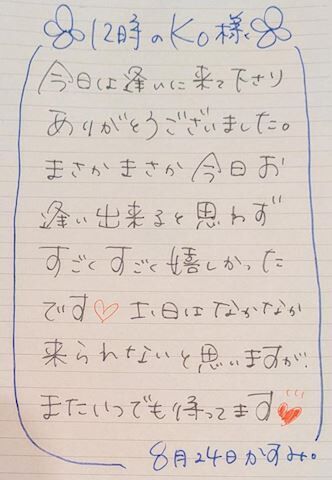 12時のKO様
今日は逢いに来て下さり
ありがとうございました。
まさかまさか今日お
逢い出来ると思わず
すごくすごく嬉しかった
です♡ 土日はなかなか
来られないと思いますが、
またいつでも待ってます♥
8月24日かすみ。